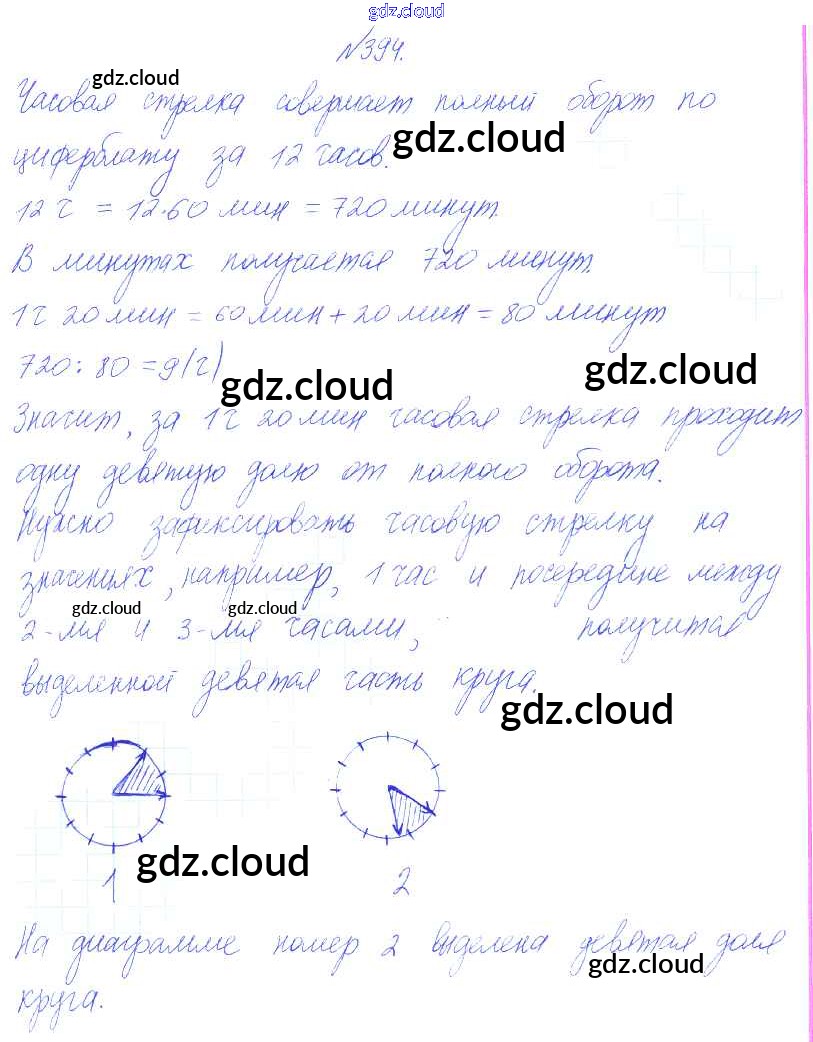 gdz.cloud
№394.
gdz.cloud
Часовая стрелка совершает полный оборот по
gdz.cloud
циферблату за 12 часов.
12 ч = 12·60 мин = 720 минут.
В минутах получается 720 минут.
1ч 20 мин = 60 мин + 20 мин = 80 минут
720 : 80 = 9 (ч)
gdz.cloud
gdz.cloud
Значит, за 1ч 20 мин часовая стрелка проходит
одну девятую долю от полного оборота.
Нужно зафиксировать часовую стрелку на
значениях, например, 1 час и посередине между
gdz.cloud gdz.cloud
2-мя и 3-мя часами, получится
выделенной девятая часть круга.
gdz.cloud
gdz.cloud
1 2
На диаграмме номер 2 выделена девятая доля
gdz.cloud
круга.